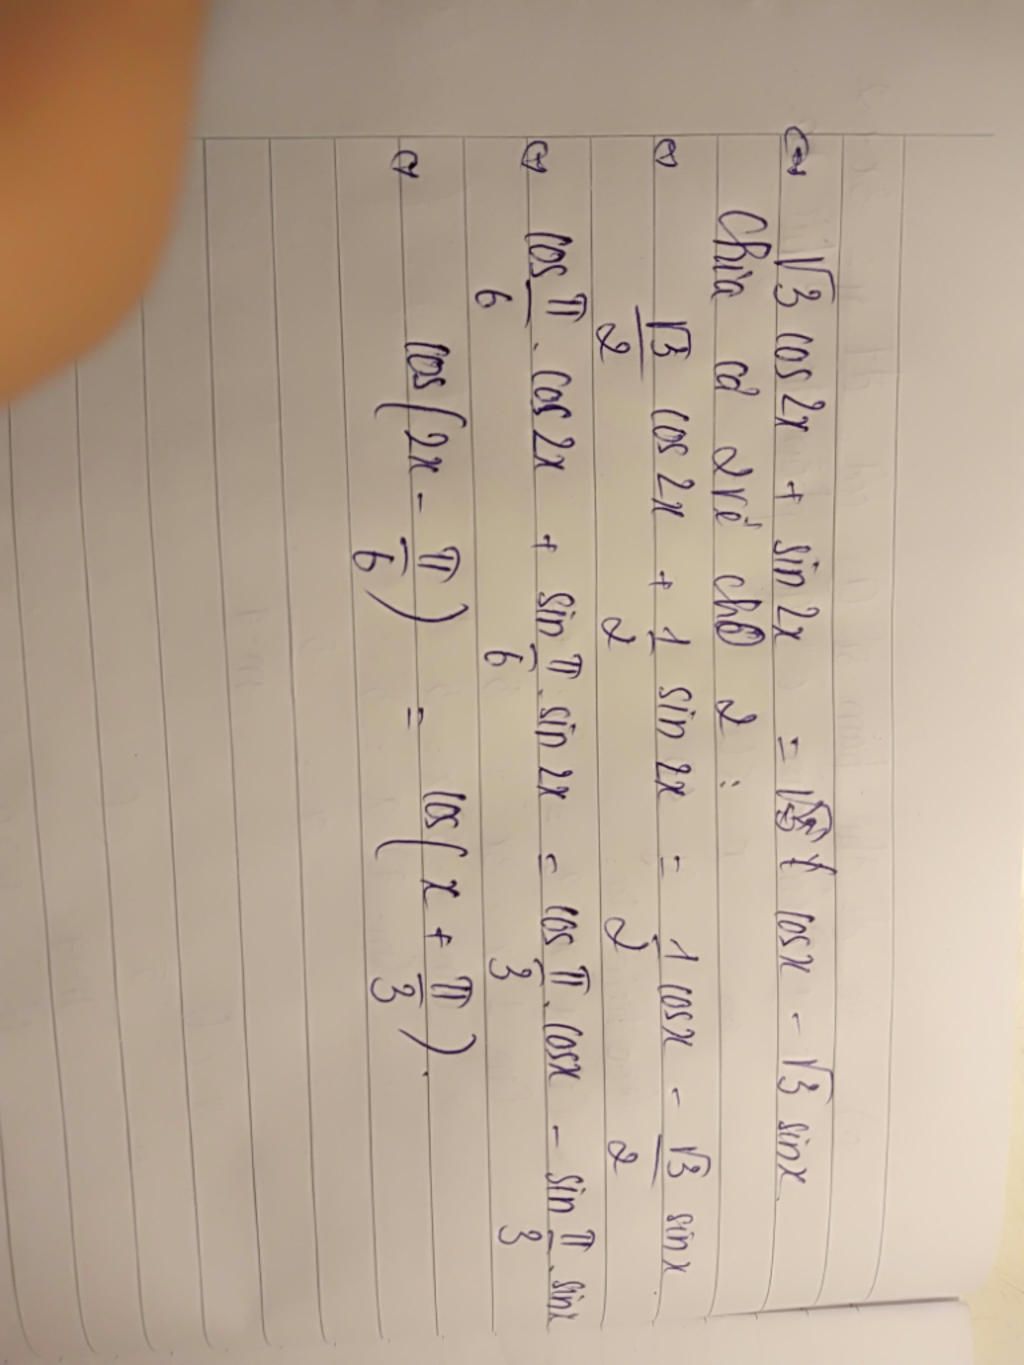 ⇔ √3 cos2x + sin2x = cosx - √3 sinx
Chia cả 2 vế cho 2 :
⇔ √3/2 cos2x + 1/2 sin2x = 1/2 cosx - √3/2 sinx
⇔ cos π/6 . cos2x + sin π/6 . sin2x = cos π/3 . cosx - sin π/3 . sinx
⇔ cos(2x - π/6) = cos(x + π/3).